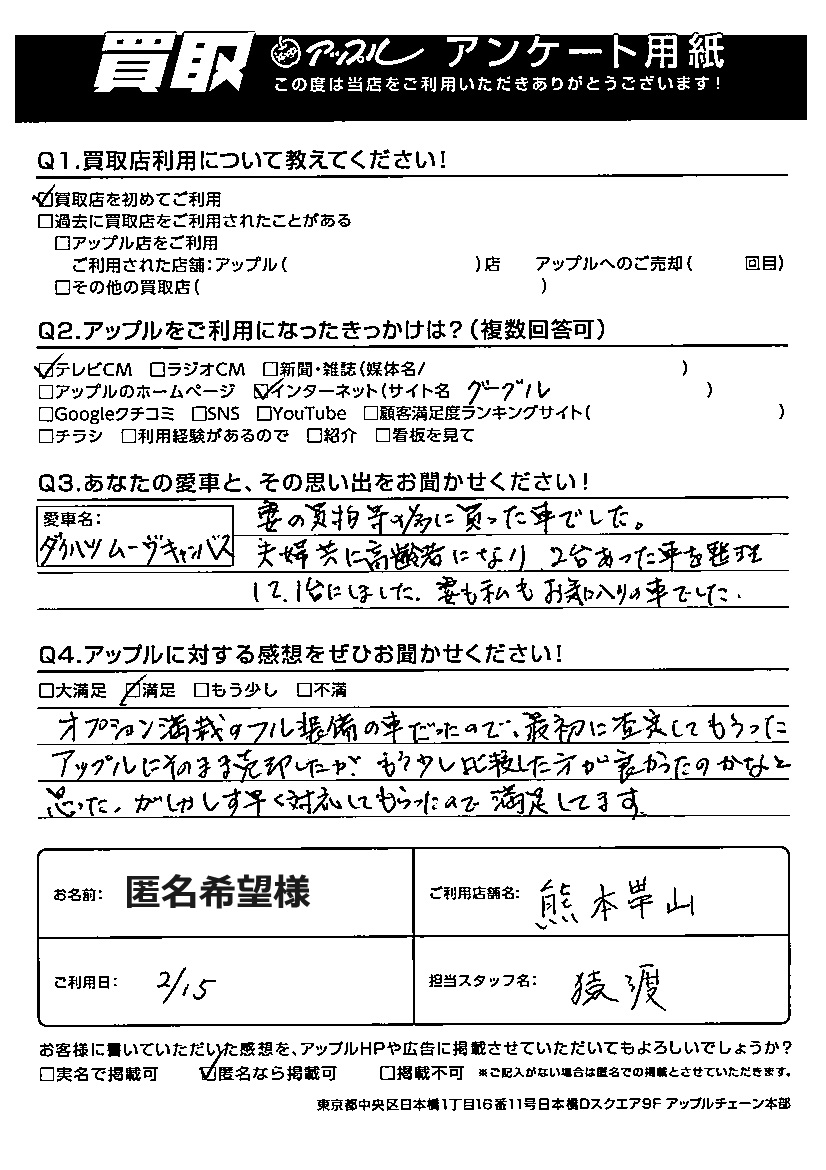 買取 アップル アンケート用紙
この度は当店をご利用いただきありがとうございます!
Q1.買取店利用について教えてください!
☑買取店を初めてご利用
□過去に買取店をご利用されたことがある
□アップル店をご利用
ご利用された店舗:アップル( )店 アップルへのご売却( 回目)
□その他の買取店( )
Q2.アップルをご利用になったきっかけは?(複数回答可)
☑テレビCM □ラジオCM □新聞・雑誌(媒体名/ )
□アップルのホームページ ☑インターネット(サイト名 グーグル )
□Googleクチコミ □SNS □YouTube □顧客満足度ランキングサイト( )
□チラシ □利用経験があるので □紹介 □看板を見て
Q3.あなたの愛車と、その思い出をお聞かせください!
愛車名:
ダイハツ ムーヴキャンバス
妻の買物等の為に買った車でした。
夫婦共に高齢者になり 2台あった車を
1台にしました. 妻も私もお気に入りの車でした.
Q4.アップルに対する感想をぜひお聞かせください!
□大満足 ☑満足 □もう少し □不満
オプション満載のフル装備の車だったので、最初に査定してもらった
アップルにそのまま売却したが、もう少し比較した方が良かったのかなと
思った。しかし す早く対応してもらったので 満足してます.
お名前: 匿名希望様
ご利用店舗名: 熊本帯山
ご利用日: 2/15
担当スタッフ名: 猿渡
お客様に書いていただいた感想を、アップルHPや広告に掲載させていただいてもよろしいでしょうか?
□実名で掲載可 ☑匿名なら掲載可 □掲載不可 ※ご記入がない場合は匿名での掲載とさせていただきます。
東京都中央区日本橋1丁目16番11号日本橋Dスクエア9F アップルチェーン本部